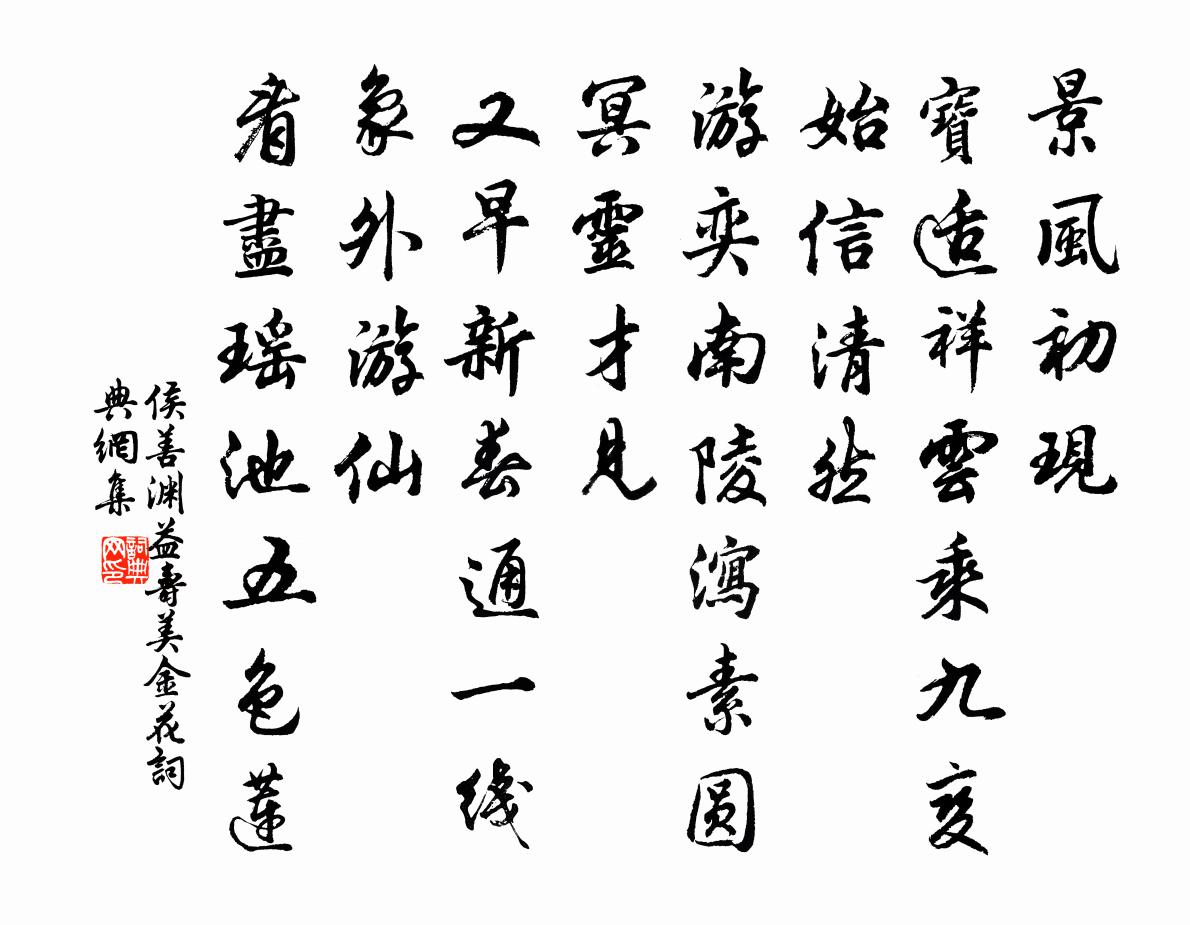 景風初現
寶适祥雲乘九變
始信清然
游奕南陵瀉素圓
冥靈才見
又早新春通一线
象外游仙
看盡瑶池五色蓮
侯善渊益壽美金花詞
典網集
詞典網印